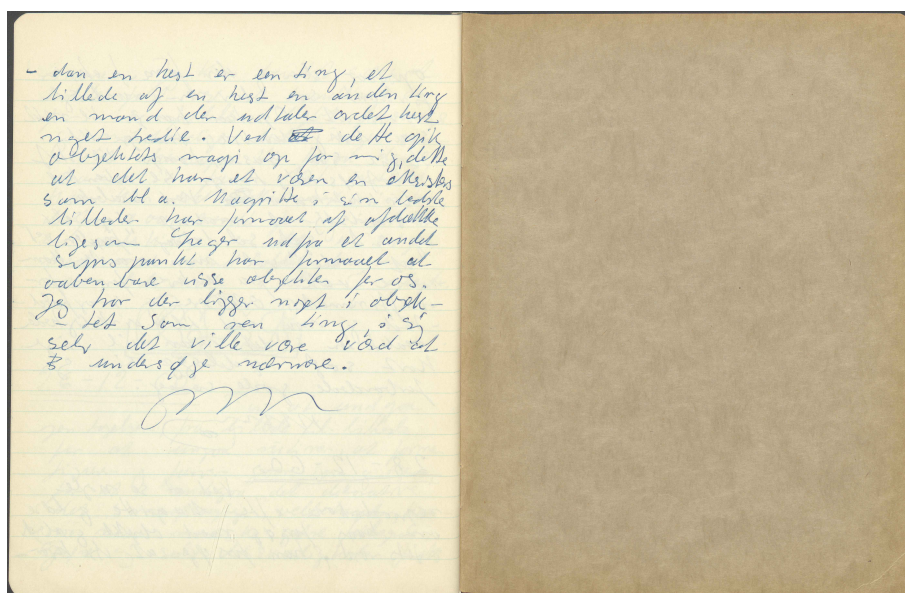 - dan en hest er een ting, et
billede af en hest en anden ting
en mand der udtaler ordet hest
noget tredie. Ved dette gik
objektets magi op for mig, dette
at det har et væren en eksistens
som bl a. Magritte i sin bedste
billeder har formaaet at afdække
ligesom Léger ud fra et andet
syns punkt har formaaet at
aabenbare visse objekter for os.
Jeg tror der ligger noget i objek-
- tet som ren ting, i sig
selv det ville være værd at
undersøge nærmere.